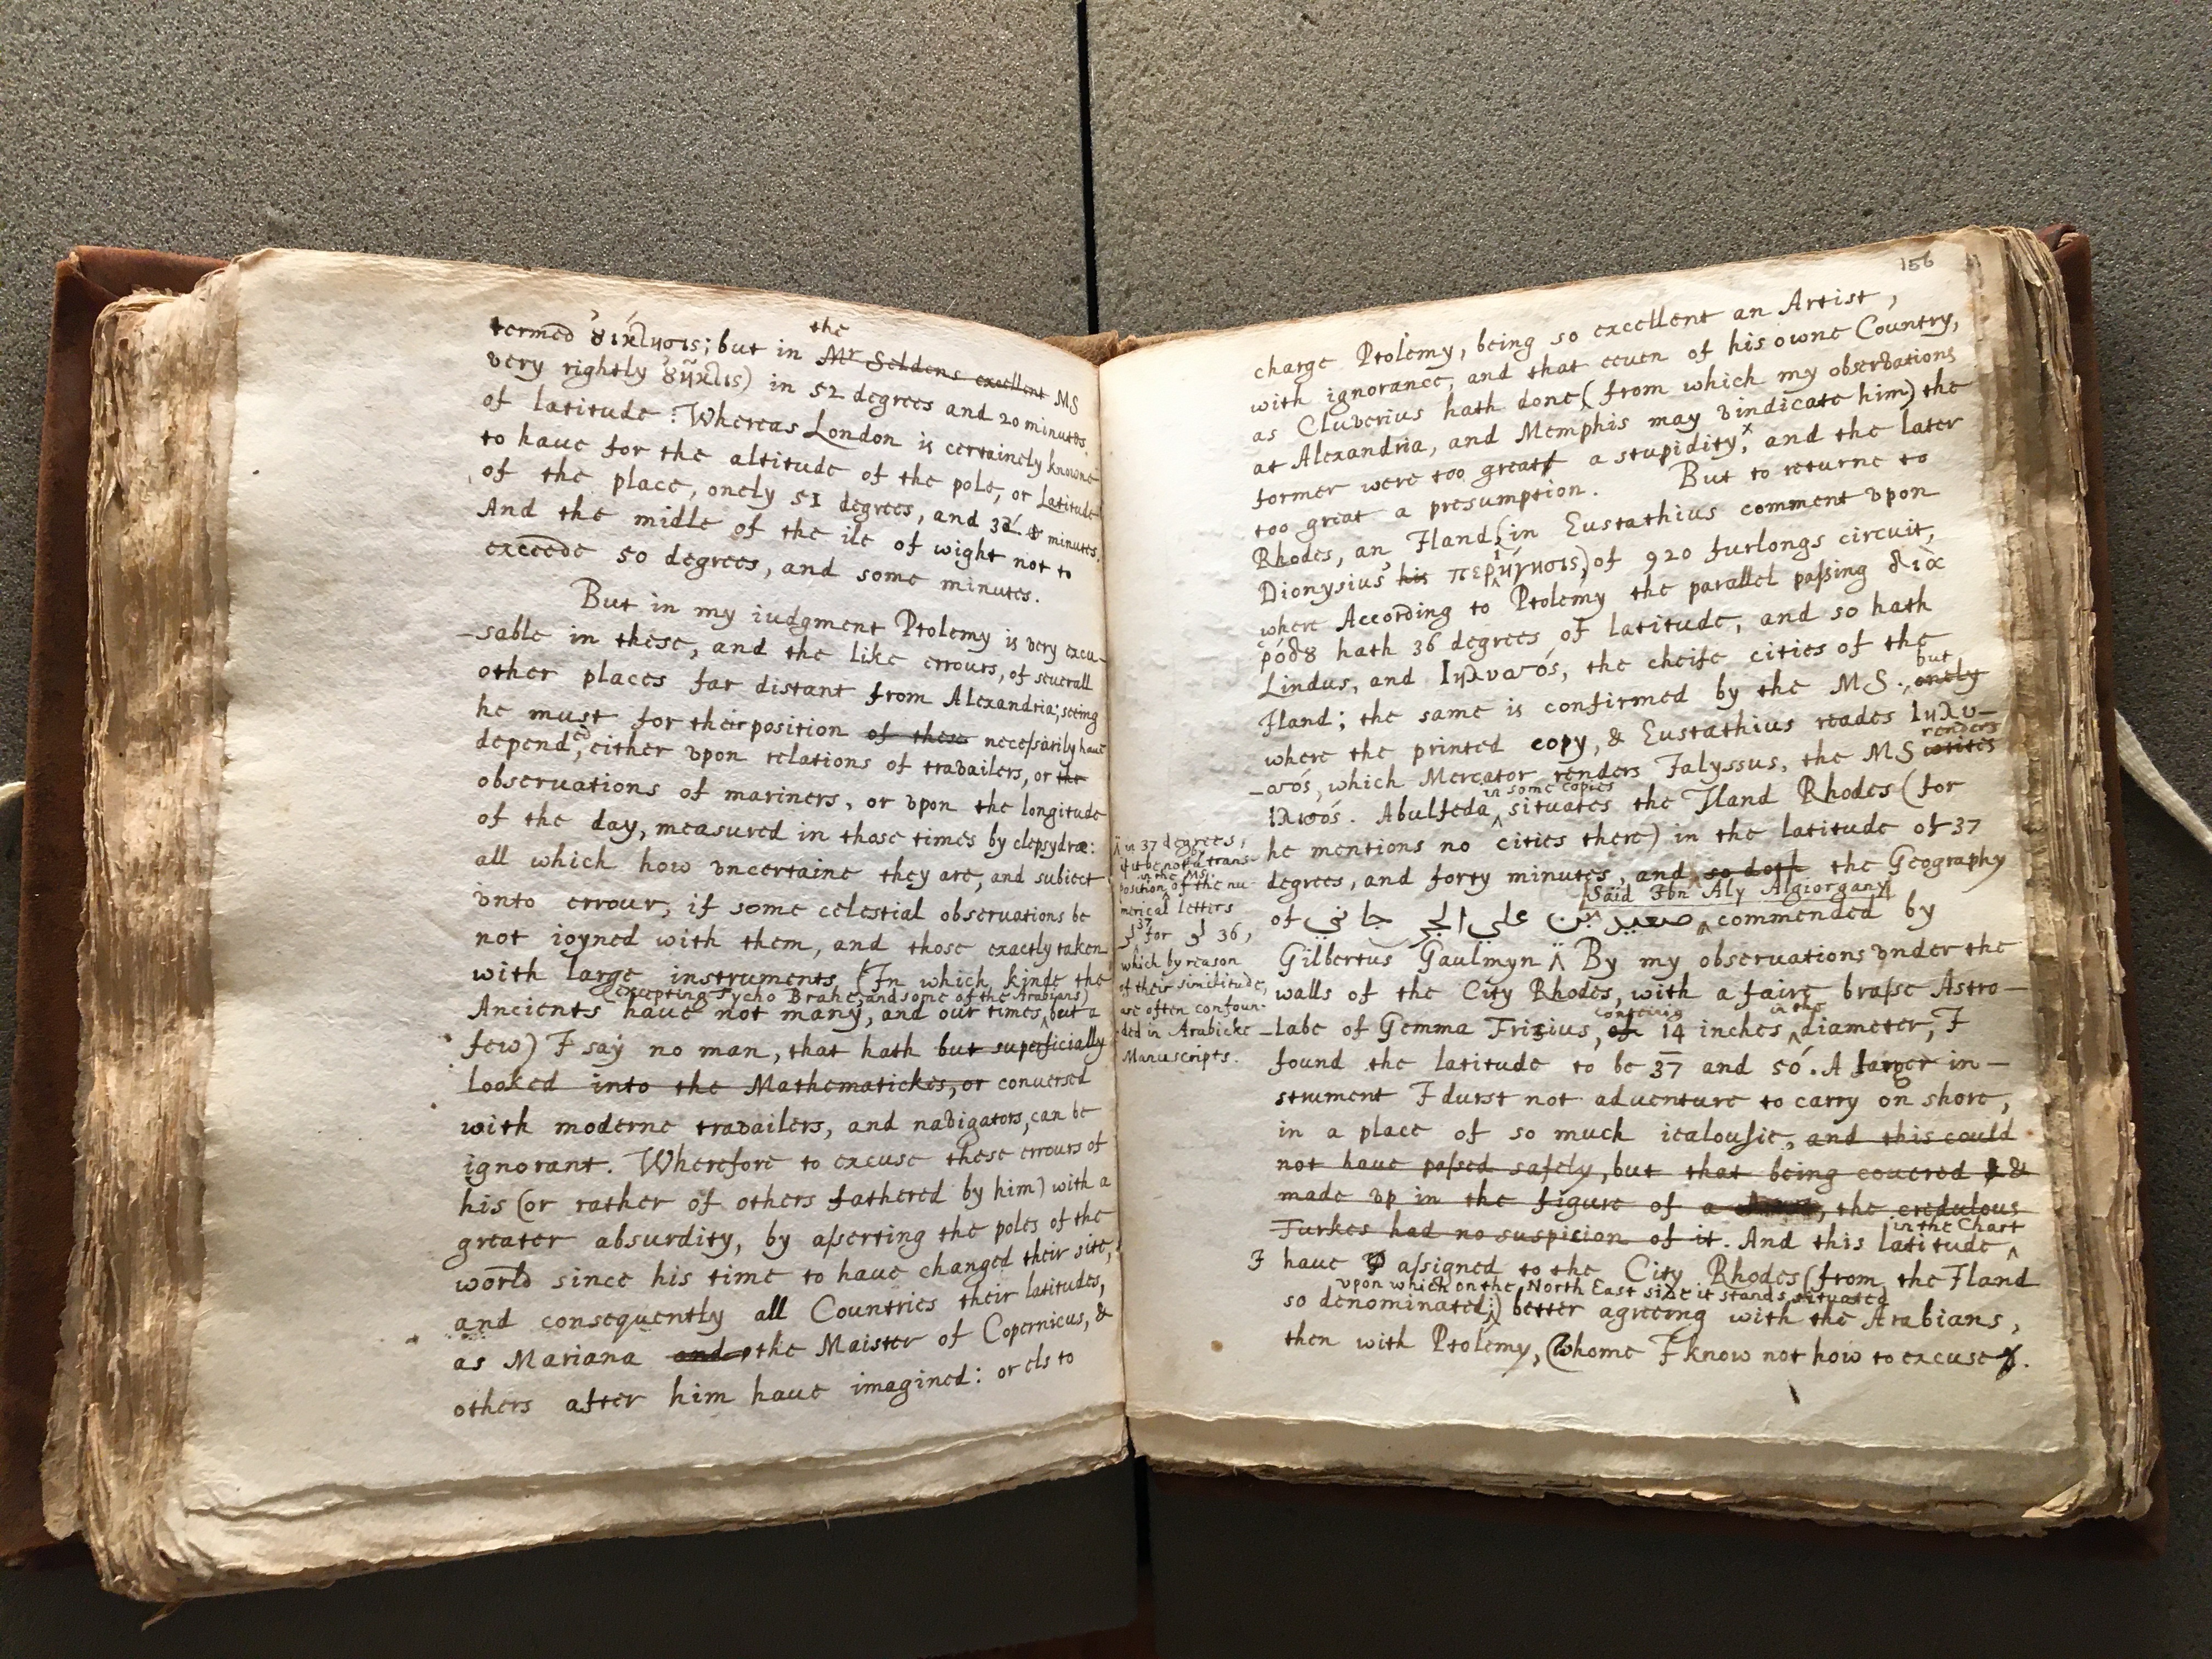 termed ȣ̓ίκτησις; but in the M<sup>r</sup> Seldens excellent MS
very rightly ȣ̓ῆκτις) in 52 degrees and 20 minutes
of latitude: Whereas London is certainely knowne
to haue for the altitude of the pole, or Latitude
of the place, onely 51 degrees, and 32 minutes.
And the midle of the ile of wight not to
exceede 50 degrees, and some minutes.
But in my iudgment Ptolemy is very excu-
-sable in these, and the like errours, of seuerall
other places far distant from Alexandria; seeing
he must for their position of these necessarily haue
depend, either vpon relations of travailers, or the
observations of mariners, or vpon the longitude
of the day, measured in those times by clepsydræ:
all which how vncertaine they are, and subiect
vnto errour, if some celestial observations be
not ioyned with them, and those exactly taken
with large instruments (In which kinde the
(excepting Tycho Brahe, and some of the Arabians)
Ancients haue not many, and our times but a
few) I say no man, that hath but superficially
looked into the Mathematickes, or conversed
with moderne travailers, and navigators, can be
ignorant. Wherefore to excuse these errours of
his (or rather of others fathered by him) with a
greater absurdity, by asserting the poles of the
world since his time to haue changed their site,
and consequently all Countries their latitudes,
as Mariana and the Maister of Copernicus, &
others after him haue imagined: or els to
156
charge Ptolemy, being so excellent an Artist,
with ignorance, and that eeuen of his owne Country,
as Cluverius hath done, (from which my observations
at Alexandria, and Memphis may vindicate him) the
former were too great a stupidity, and the later
too great a presumption. But to returne to
Rhodes, an Iland (in Eustathius comment vpon
Dionysius his περιήγησις) of 920 furlongs circuit,
where According to Ptolemy the parallel passing διὰ
ῥόδȣ hath 36 degrees of latitude, and so hath
Lindus, and Ιηλυσσός, the cheife cities of the
Iland; the same is confirmed by the MS. but onely
where the printed copy, & Eustathius reades Ιηλυ-
-σσός, which Mercator renders Ialyssus, the MS renders writes
in some copies
Ιλυσός. Abulfeda situates the Iland Rhodes (for
he mentions no cities there) in the latitude of 37
degrees, and forty minutes, and so doth the Geography
Said Ibn Aly Algiorgany
of صعيد بن علي الجرجاني commended by
Gilbertus Gaulmyn By my observations vnder the
walls of the City Rhodes, with a faire brasse Astro-
-labe of Gemma Frisius, conteing of 14 inches in the diameter, I
found the latitude to be 37 and 50. A larger in-
strument I durst not adventure to carry on shore,
in a place of so much iealousie, and this could
not haue passed safely, but that being couered &
made vp in the figure of a, the credulous
Turkes had no suspicion of it. And this latitude in the Chart
I haue assigned to the City Rhodes (from the Iland
vpon which on the North East side it stands situated
so denominated;) better agreeing with the Arabians,
then with Ptolemy, (whome I know not how to excuse).
in 37 degrees,
if it be not a trans-
in the MS.
position of the nu-
merical letters
37 for 36,
which by reason
of their similitude,
are often confoun-
ded in Arabicke
Manuscripts.